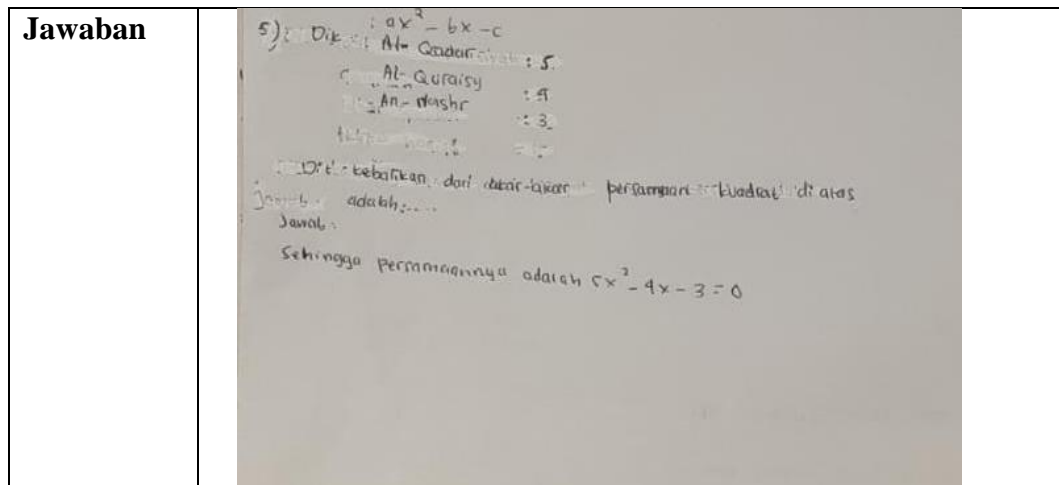 Jawaban
: ax² - bx - c
5): Dik : Al- Qadar : 5.
Al- Quraisy : 4
An- Nashr : 3
Dit : kebalikan dari akar-akar persamaan kuadrat di atas
adalah:....
Jawab :
Sehingga persamaannya adalah 5x² - 4x - 3 = 0